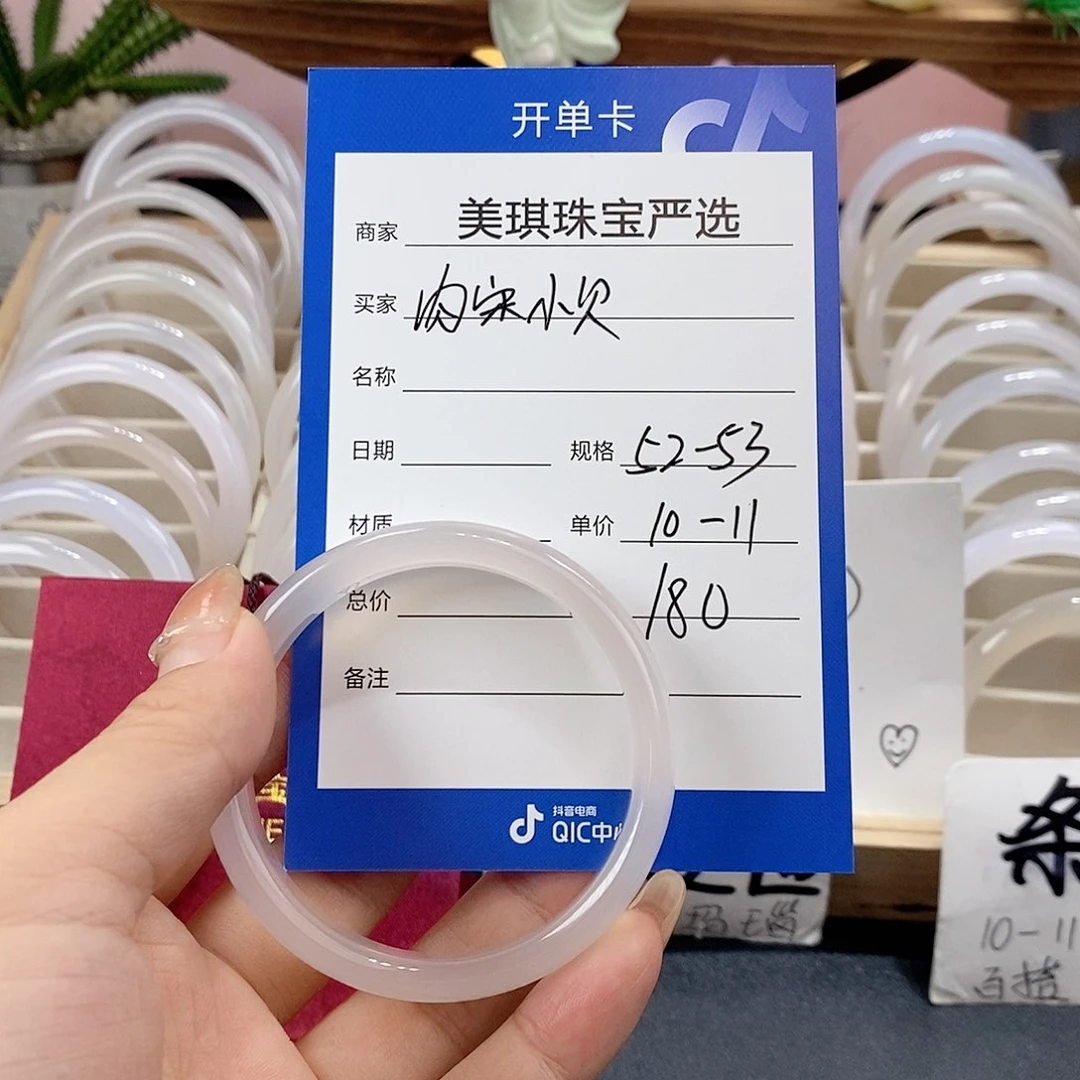 开单卡
商家 美琪珠宝严选
买家 肉宋小贝
名称
日期 规格 52-53
材质 单价 10-11
总价 180
备注
抖音电商
QIC中
玛瑙
条
10-11